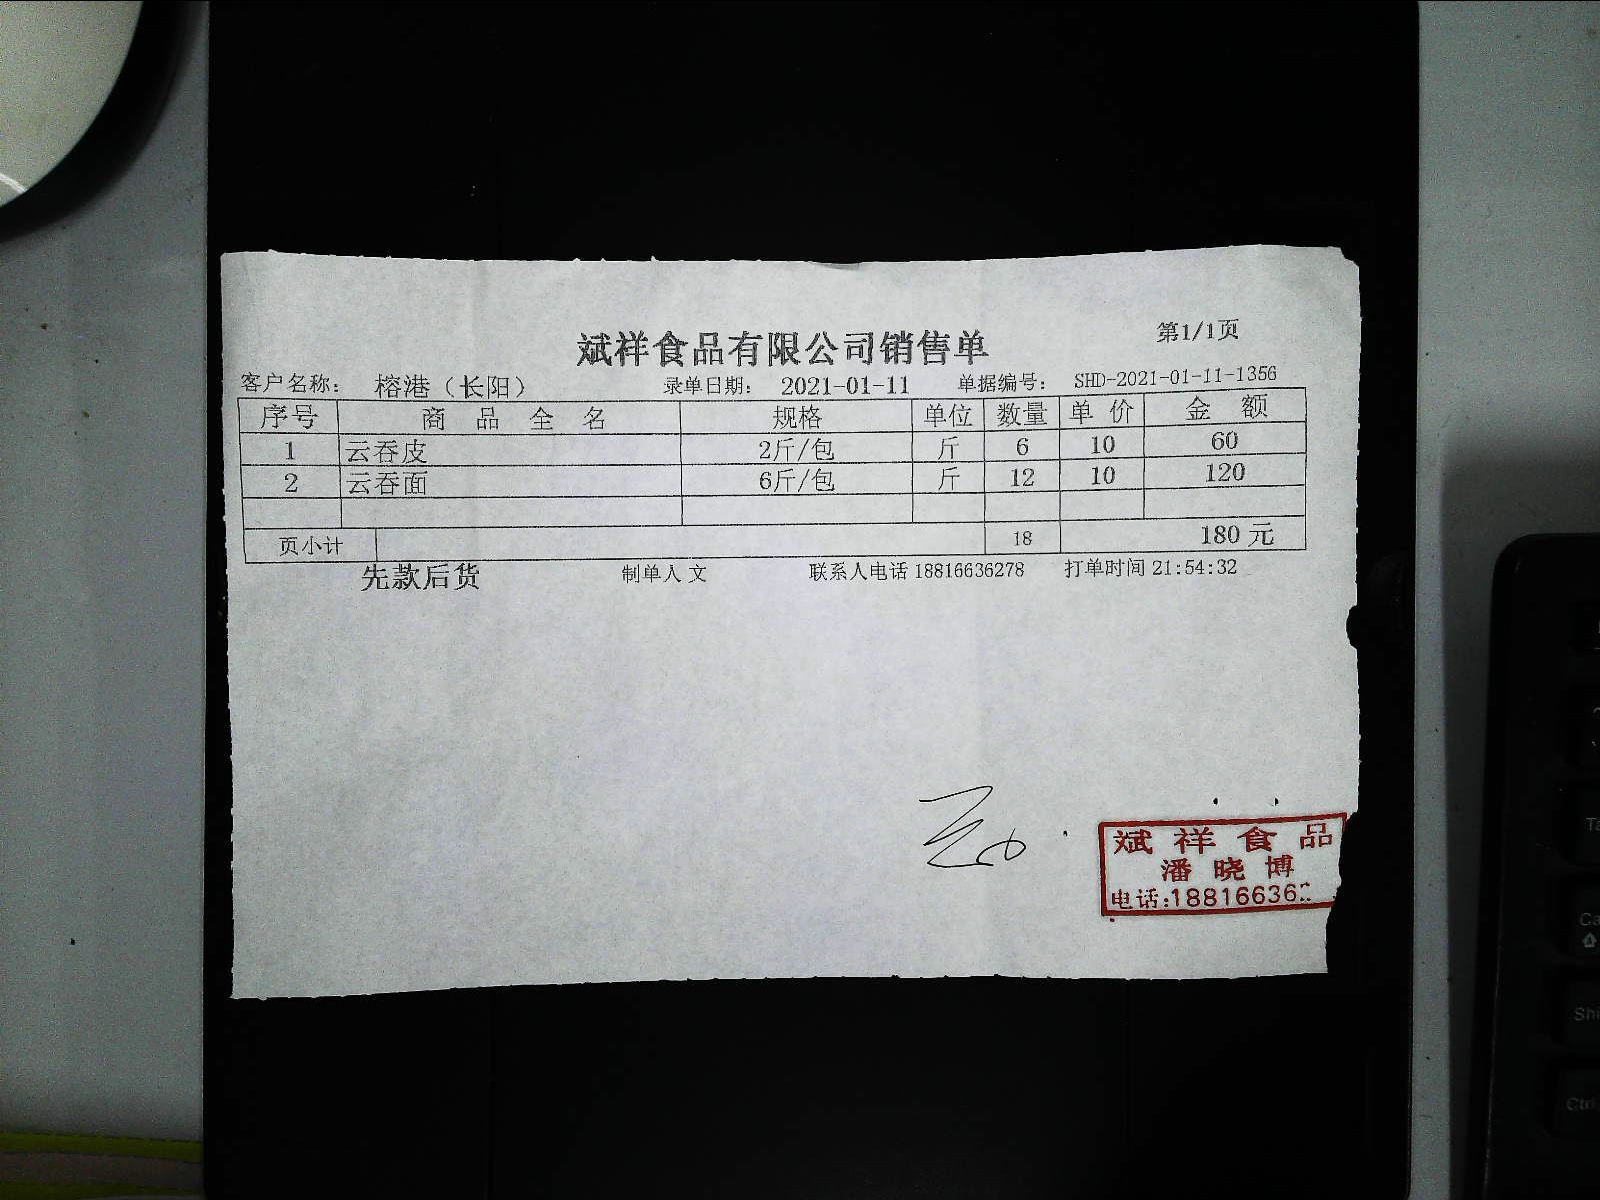 斌祥食品有限公司销售单
第1/1页
客户名称： 榕港（长阳） 录单日期： 2021-01-11 单据编号： SHD-2021-01-11-1356
序号 商品全名 规格 单位 数量 单价 金额
1 云吞皮 2斤/包 斤 6 10 60
2 云吞面 6斤/包 斤 12 10 120
页小计 18 180 元
先款后货 制单人 文 联系人电话 18816636278 打单时间 21:54:32
斌祥食品
潘晓博
电话:188166362
Ctrl